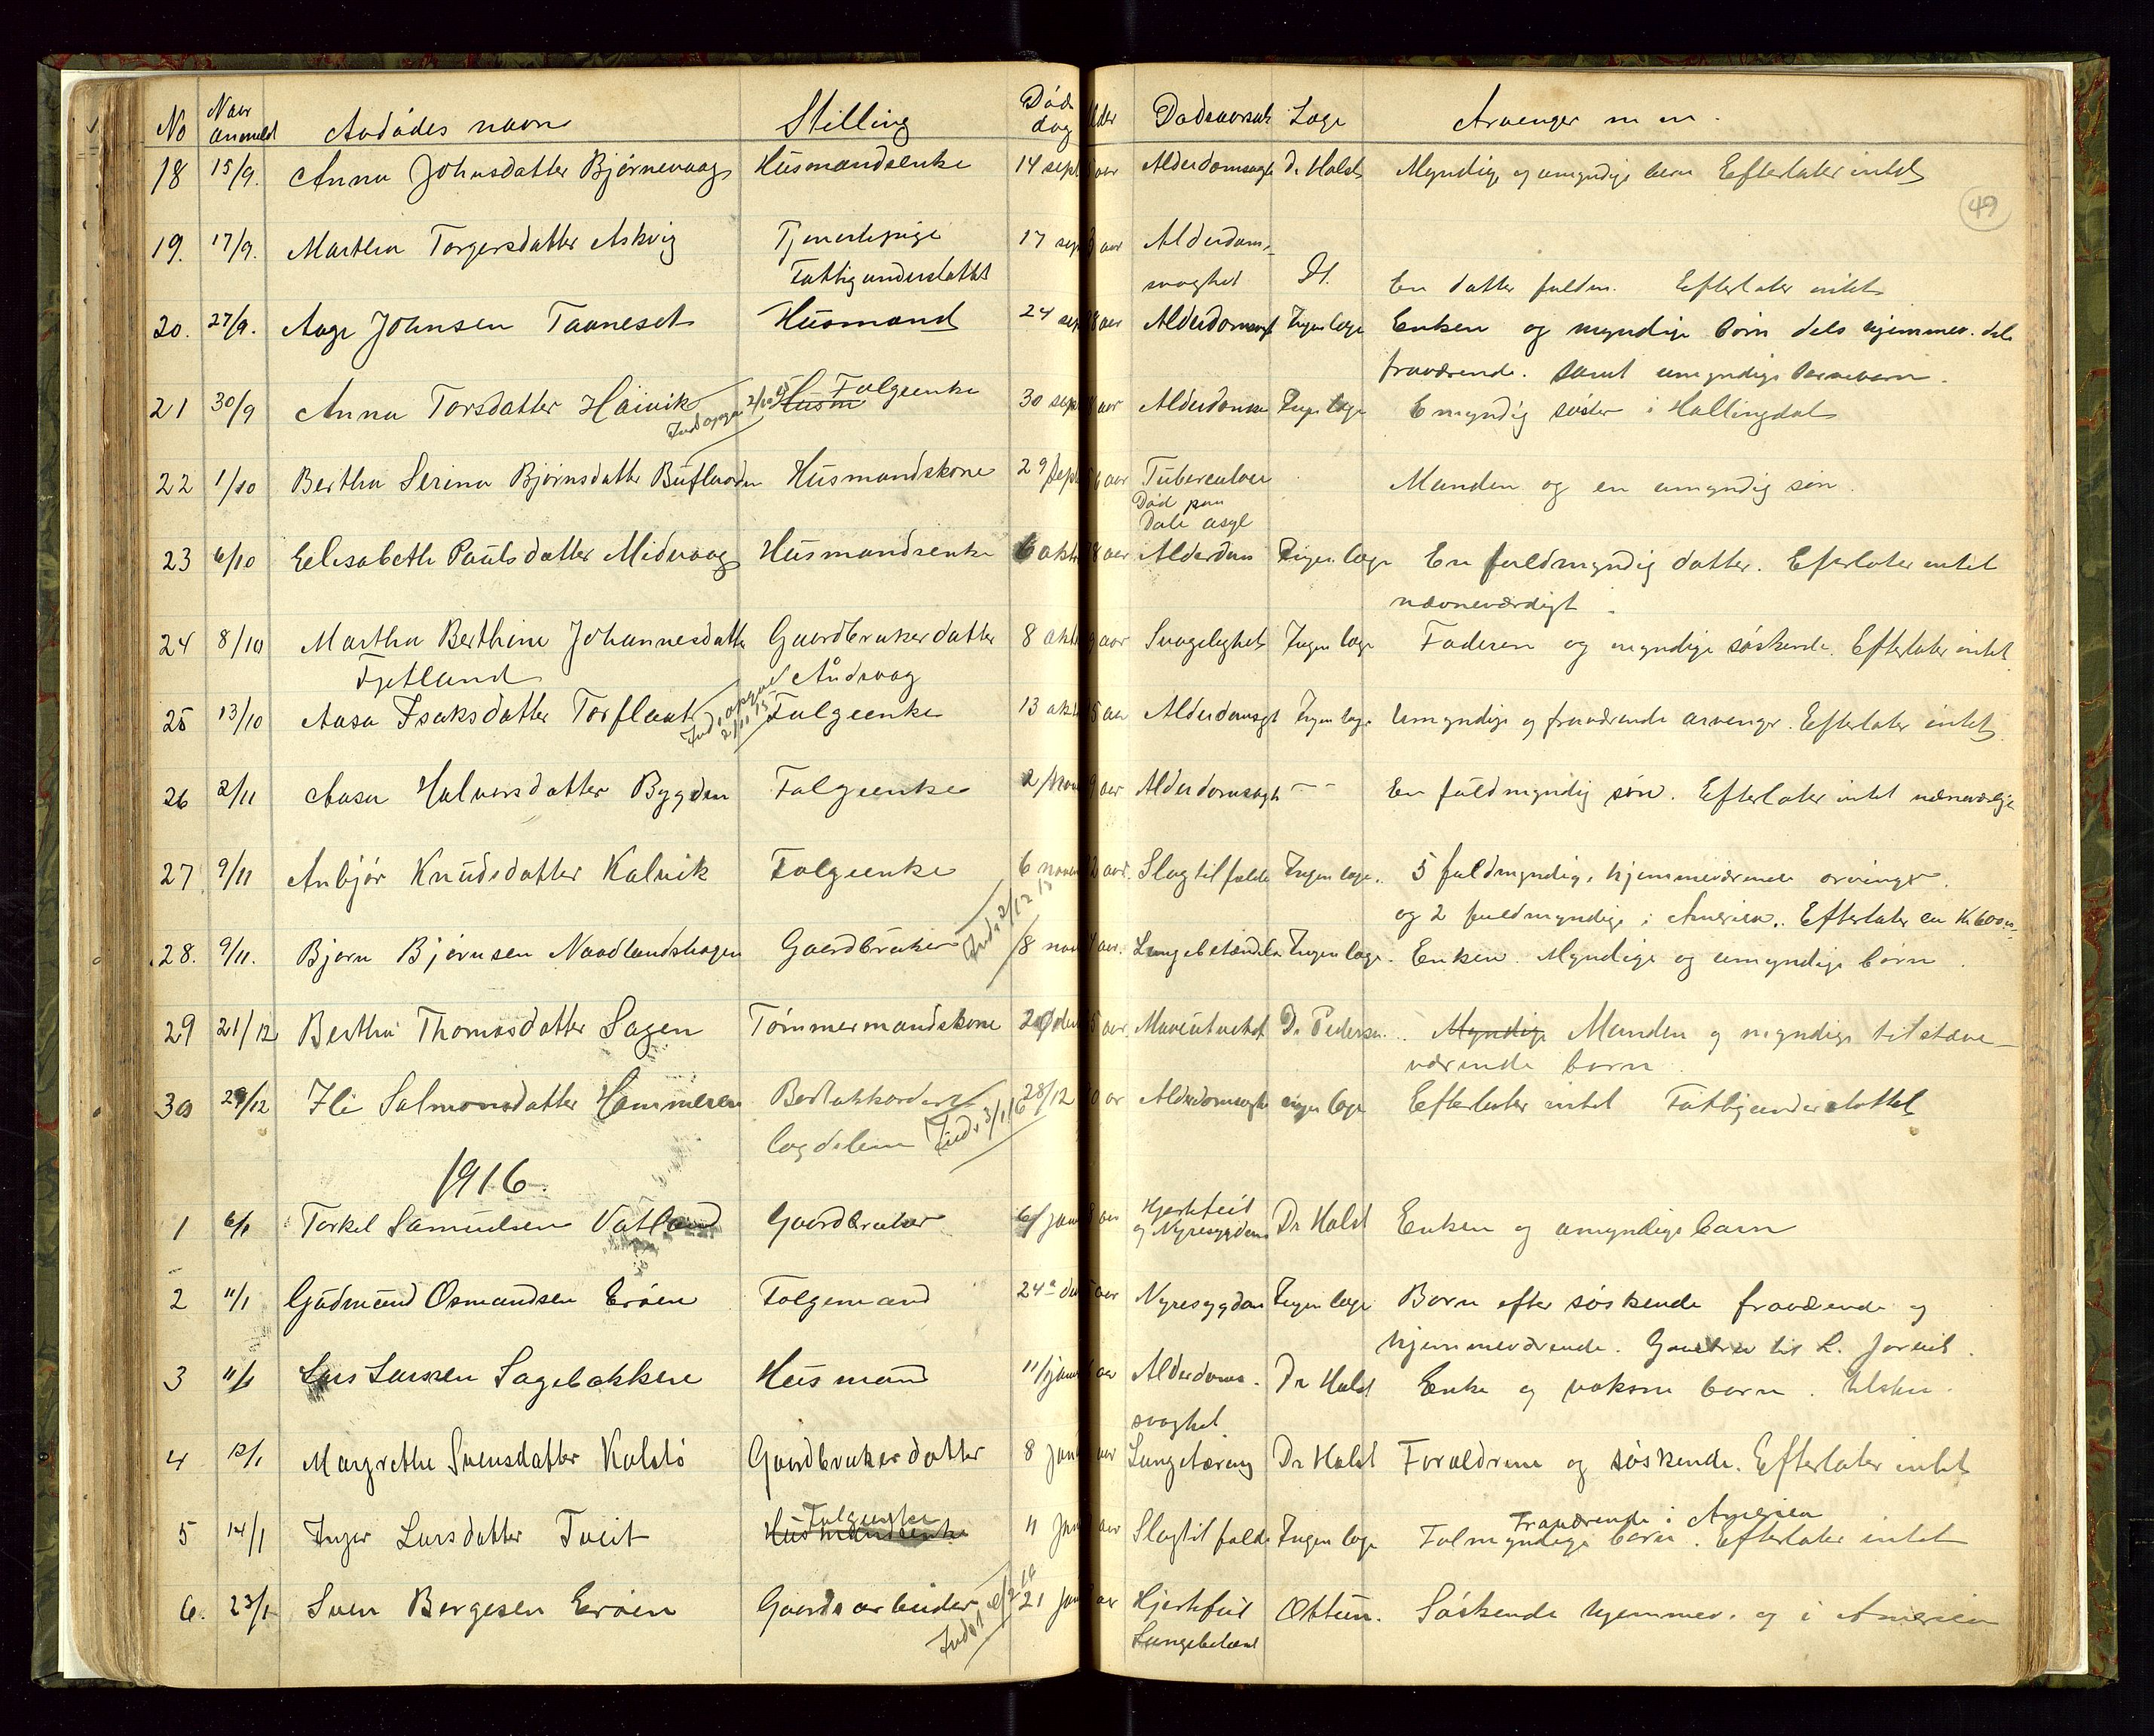 No Naar anmeldt Avdødes navn Stilling Døds dag Alder Dødsaarsak Læge Arvinger m m.
49
18 15/9. Anna Johnsdatter Bjørnevaag Husmandsenke 14 sept aar Alderdomssvagh Dr Holst Myndige og umyndige børn Efterlater intet
19. 17/9. Martha Torgersdatter Askvig Tjenestepige 17 sep aar Alderdom-
Fattigunderstøttet svaghet H. En datter fuldm. Efterlater intet
20. 27/9. Aage Johnsen Taaneset Husmand 24 sep aar Alderdomsvgh Ingen læge Enken og myndige børn dels hjemmev. dels
fraværende. samt umyndige barnebarn.
21 30/9 Anna Torsdatter Høivik 2/10 15 Husm Følgeenke 30 sept aar Alderdom Ingen læge E myndig søster i Hallingdal
22 1/10 Bertha Serina Bjørnsdatter Buflaaden Husmandskone 29 sept aar Tuberculose Manden og en umyndig søn.
Død paa
Dale asyl
23 6/10 Elisabeth Paulsdatter Midvaag Husmandsenke 6 okt 8 aar Alderdom Ingen læge En fuldmyndig datter. Efterlater intet
nævneværdigt.
24 8/10 Martha Berthine Johannesdatter Gaardbrukerdatter 8 okt 9 aar Svagelighet Ingen læge Faderen og myndige søskende. Efterlater intet.
Fjetland Åndvaag
25 13/10 Aasa Isaksdatter Torflaat Indr. opgave 2/11 15 Følgeenke 13 okt 5 aar Alderdomsvgt Ingen læge Umyndige og fraværende arvinger. Efterlater intet
26 2/11 Aasa Halvorsdatter Bygden Følgeenke 2/nov 9 aar Alderdomsvagh – – En fuldmyndig søn. Efterlater intet nævneværdig
27 9/11 Anbjør Knudsdatter Kalvik Følgeenke 6 novem 2 aar. Slagtilfælde Ingen læge. 5 fuldmyndige, hjemmeværende arvinger.
og 2 fuldmyndige i America. Efterlater ca Kr 600
28. 9/11. Bjørn Bjørnsen Naadlandshagen Gaardbruker Inds 2/12 15 8 nov 4 aar. Lungebetændelse Ingen læge. Enken. Myndige og umyndige børn.
29 21/12 Bertha Thomasdatter Sagen Tømmermandskone 20 dec 5 aar. Mavesaarhet Dr Pedersen. Myndige Manden og myndige tilstede-
værende børn
30 29/12 Ili Salmonsdatter Hammeren 28/12 0 ar Alderdomsvagh ingen læge Efterlater intet Fattigunderstøttet
lægdslem Inds 3/1 16
1916.
1 6/1 Torkel Samuelsen Vatland Gaardbruker 6/ janu aar Hjertefeil og Nyresygdom Dr Holst Enken og umyndige barn
2 11/1 Gudmund Osmundsen Erøen Følgemand 24de dec aar Nyresygdom Ingen læge Barn efter søskende fraværende og
hjemmeværende. L. Joreid.
3 11/1 Lars Larssen Sagebakken Husmand 11/janu aar Alderdoms- Dr Holst Enke og voksne barn.
svaghet
4 12/1 Margrethe Svensdatter Kalstø Gaardbrukerdatter 8 janu aar Lungetæring Dr Holst Forældrene og søskende. Efterlater intet
5 14/1 Inger Larsdatter Tveit Husmandsenke Følgeenke 11 jan aar Slagtilfælde Ingen læge Fraværende i America Fulmyndige barn. Efterlater intet
6. 23/1 Sven Børgesen Erøen Gaardsarbeider 21 jan aar Hjertefeil Ottun. Søskende hjemmev. og i America
Lungebetænd